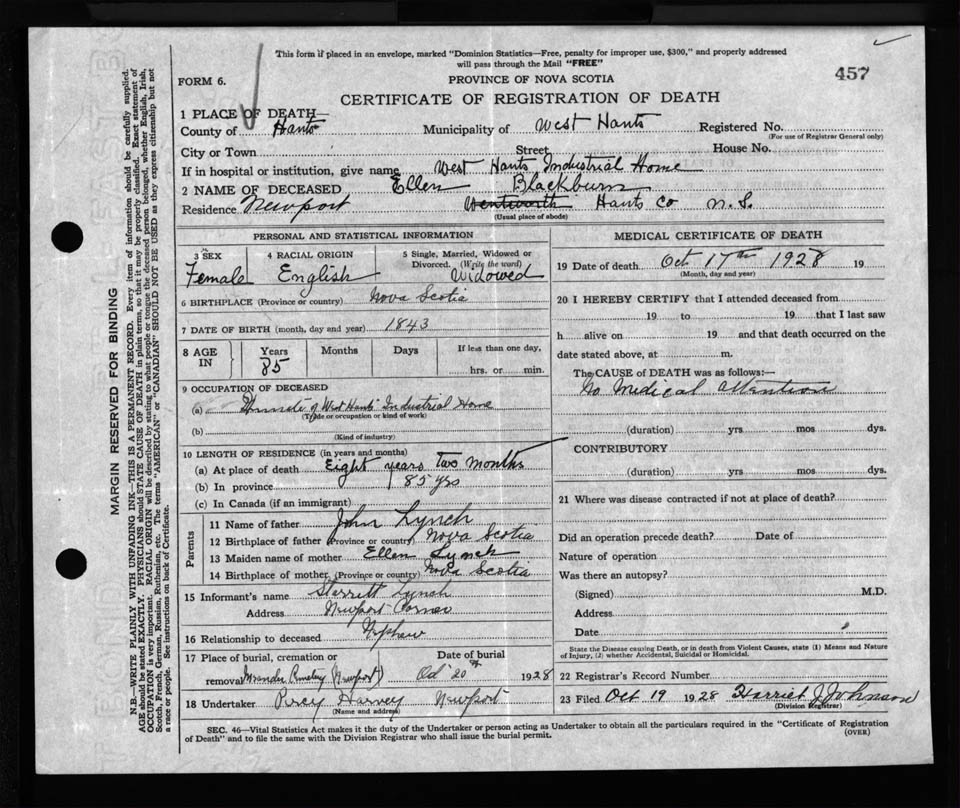 This form if placed in an envelope, marked "Dominion Statistics—Free, penalty for improper use, $300," and properly addressed
will pass through the Mail "FREE"
457
FORM 6.
PROVINCE OF NOVA SCOTIA
CERTIFICATE OF REGISTRATION OF DEATH
1 PLACE OF DEATH
County of Hants Municipality of West Hants Registered No.
(For use of Registrar General only)
City or Town Street House No.
If in hospital or institution, give name West Hants Industrial Home
2 NAME OF DECEASED Ellen Blackburn
Residence Newport Wentworth Hants Co N.S.
(Usual place of abode)
PERSONAL AND STATISTICAL INFORMATION
3 SEX 4 RACIAL ORIGIN 5 Single, Married, Widowed or
Divorced. (Write the word)
Female English Widowed
6 BIRTHPLACE (Province or country) Nova Scotia
7 DATE OF BIRTH (month, day and year) 1843
8 AGE IN Years Months Days If less than one day,
85 hrs. or min.
9 OCCUPATION OF DECEASED
(a) Inmate of West Hants Industrial Home
(Trade or occupation or kind of work)
(b)
(Kind of industry)
10 LENGTH OF RESIDENCE (in years and months)
(a) At place of death Eight years two months
(b) In province 85 yrs
(c) In Canada (if an immigrant)
Parents
11 Name of father John Lynch
12 Birthplace of father (Province or country) Nova Scotia
13 Maiden name of mother Ellen Lynch
14 Birthplace of mother (Province or country) Nova Scotia
15 Informant's name Starrett Lynch
Address Newport Corner
16 Relationship to deceased Nephew
17 Place of burial, cremation or Date of burial
removal Cemetery Newport Oct 20th 1928
18 Undertaker Percy Harvey Newport
(Name and address)
MEDICAL CERTIFICATE OF DEATH
19 Date of death Oct 17th 1928 19
(Month, day and year)
20 I HEREBY CERTIFY that I attended deceased from
19 to 19 that I last saw
h alive on 19 and that death occurred on the
date stated above, at m.
The CAUSE OF DEATH was as follows:—
No Medical attention
(duration) yrs mos dys.
CONTRIBUTORY
(duration) yrs mos dys.
21 Where was disease contracted if not at place of death?
Did an operation precede death? Date of
Nature of operation
Was there an autopsy?
(Signed) M.D.
Address
Date
State the Disease causing Death, or in death from Violent Causes, state (1) Means and Nature
of Injury, (2) whether Accidental, Suicidal or Homicidal.
22 Registrar's Record Number
23 Filed Oct 19 1928 Harriet J Johnson
(Division Registrar)
SEC. 46—Vital Statistics Act makes it the duty of the Undertaker or person acting as Undertaker to obtain all the particulars required in the "Certificate of Registration
of Death" and to file the same with the Division Registrar who shall issue the burial permit.
(OVER)
MARGIN RESERVED FOR BINDING
N.B.—WRITE PLAINLY WITH UNFADING INK—THIS IS A PERMANENT RECORD. Every item of information should be carefully supplied.
AGE should be stated EXACTLY. PHYSICIANS should STATE CAUSE OF DEATH in plain terms, so that it may be properly classified. Exact statement of
OCCUPATION is very important. RACIAL ORIGIN will be described by stating to what people or tongue the deceased person belonged, whether English, Irish,
Scotch, French, German, Russian, Ruthenian, etc. The terms "AMERICAN" or "CANADIAN" SHOULD NOT BE USED as they express citizenship but not
a race or people. See instructions on back of Certificate.